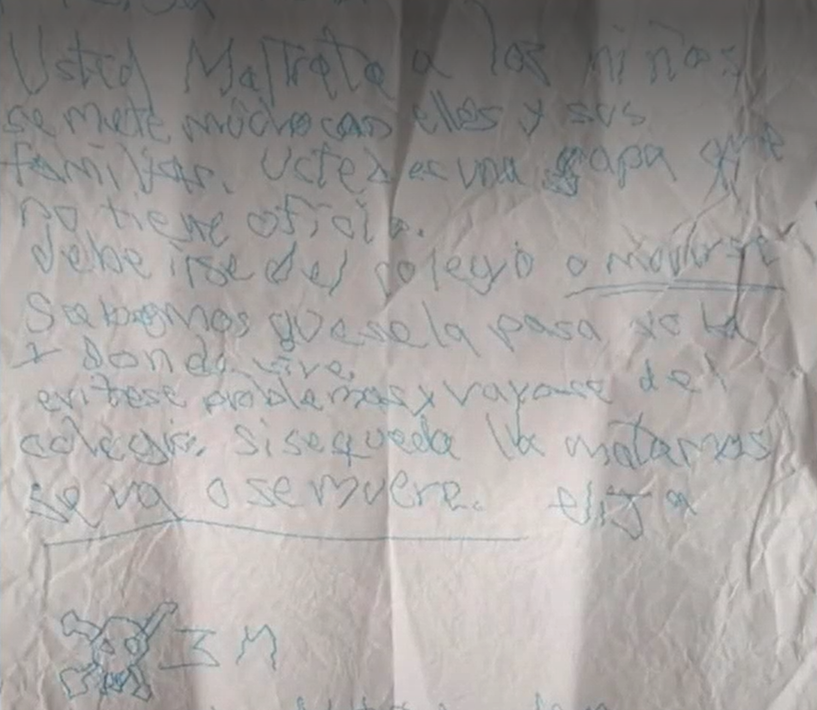 Usted Maltrata a los niños
se mete mucho con ellos y sus
familias. Usted es una sapa que
no tiene oficio.
debe irse del colegio o morirse
Sabemos que se la pasa sola
y donde vive.
evitese problemas y vayase del
colegio. si se queda la matamos
se va o se muere. elija
M